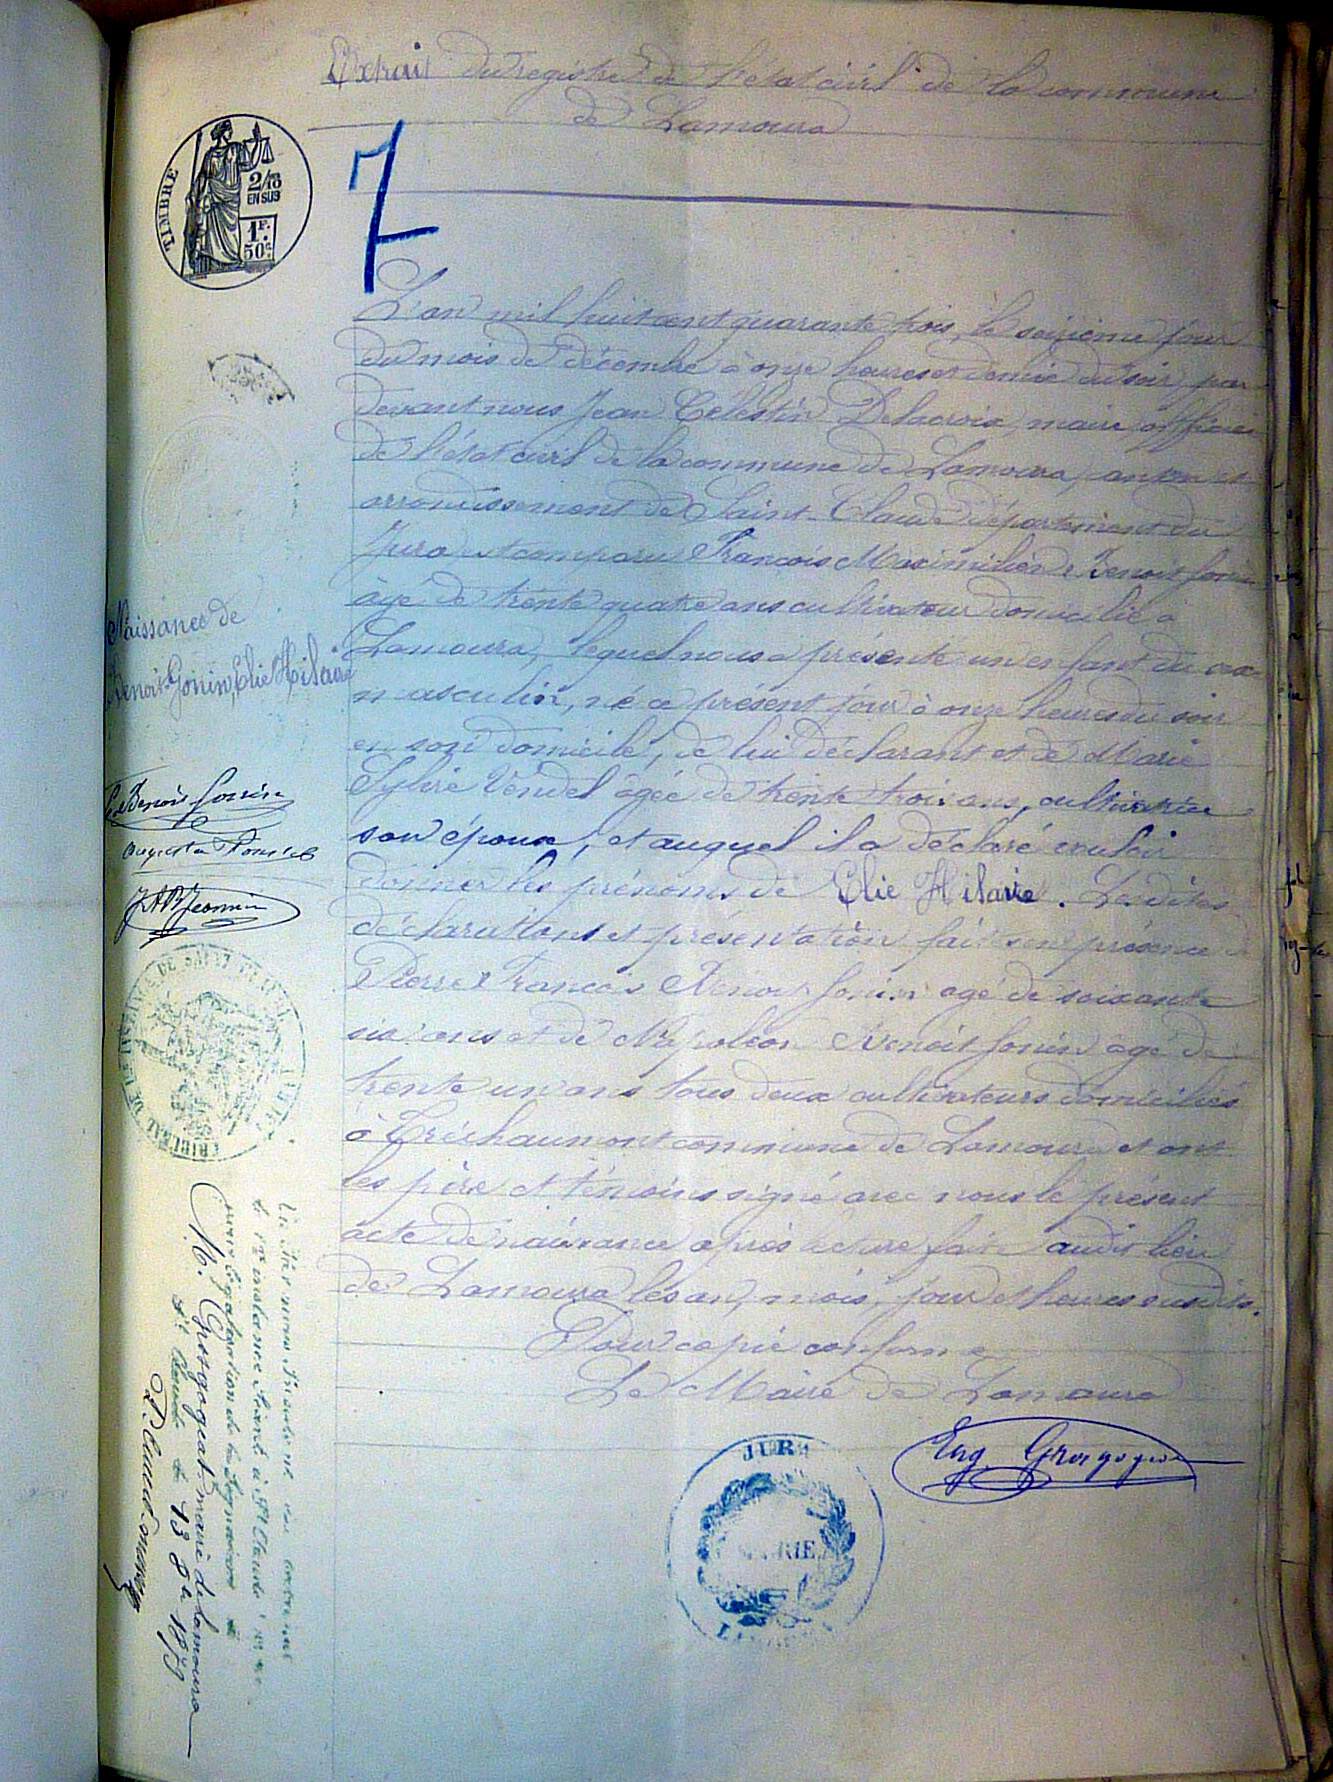 Extrait du registre de l'état civil de la commune
de Lamoura
TIMBRE
2/10
EN SUS
1F.
50c.
7
L'an mil huit cent quarante trois, le seizième jour
du mois de décembre à onze heures et demie du soir, par
devant nous Jean Célestin Delacroix, maire officier
de l'état civil de la commune de Lamoura, canton et
arrondissement de Saint-Claude département du
Jura est comparu François Maximilien Benoit Gonin
âgé de trente quatre ans cultivateur domicilié à
Lamoura, lequel nous a présenté un enfant du sexe
masculin, né ce présent jour à onze heures du soir
en son domicile, de lui déclarant et de Marie
Sylvie Vendel âgée de trente trois ans, cultivatrice
son épouse, et auquel il a déclaré vouloir
donner les prénoms de Elie Hilaire. Lesdites
déclarations et présentation faites en présence
Pierre François Benoit Gonin agé de soixante
six ans et de Napoléon Benoit Gonin âgé de
trente un ans tous deux cultivateurs domiciliés
à Tréchaumont commune de Lamoura et ont
les père et témoins signé avec nous le présent
acte de naissance après lecture faite audit lieu
de Lamoura les an, mois, jour et heures susdits.
Pour copie conforme
Le Maire de Lamoura
Eug. Grosgogeat
JURA
MAIRIE
LAMOURA
Naissance de
Benoit-Gonin, Elie Hilaire
Benoit Gonin
TRIBUNAL DE 1ère INSTANCE DE SAINT CLAUDE JURA
Vu par nous Président du tribunal
de 1re instance séant à St Claude
pour légalisation de la signature de
M. Grosgogeat maire de Lamoura
St Claude le 13 8bre 1879